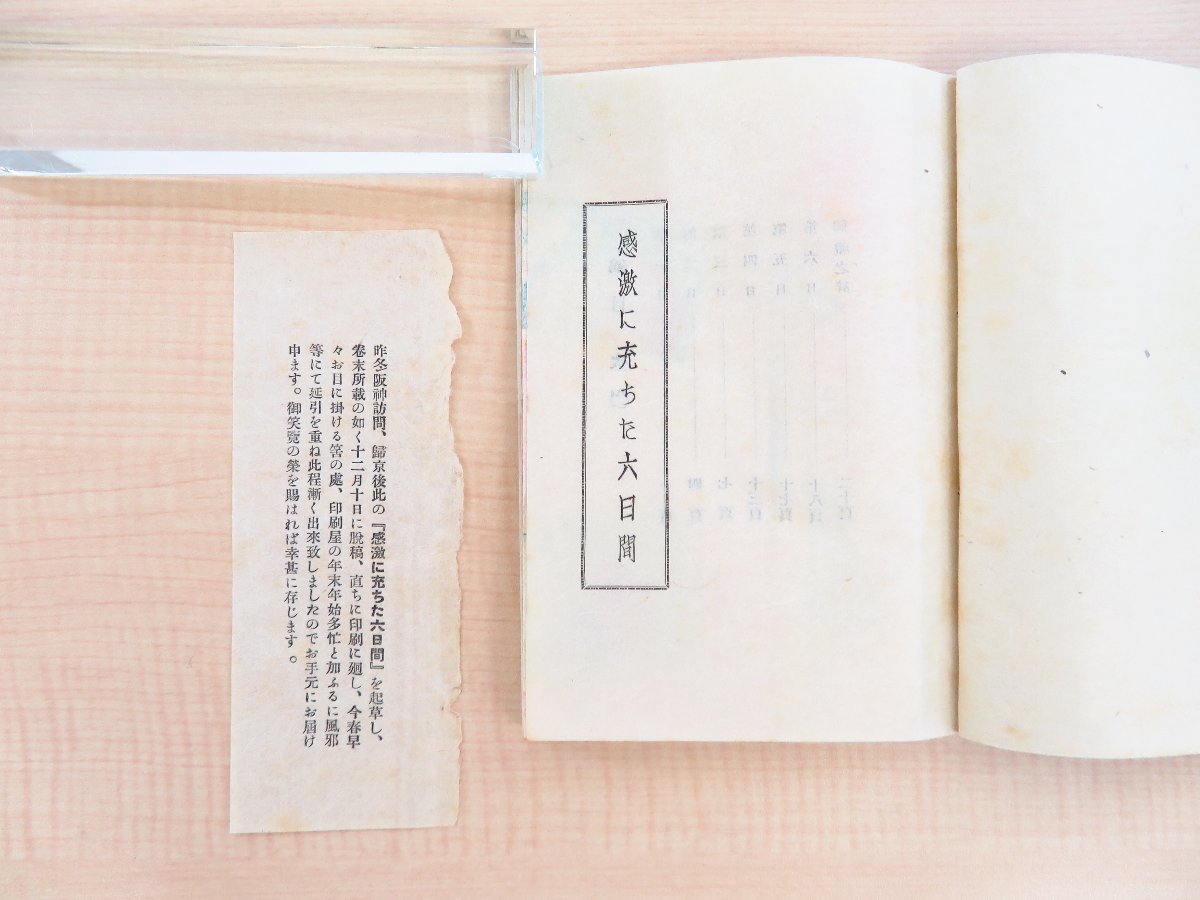 感激に充ちた六日間
昨冬阪神訪問、歸京後此の『感激に充ちた六日間』を起草し、
卷末所載の如く十二月十日に脫稿、直ちに印刷に廻し、今春早
々お目に掛ける筈の處、印刷屋の年末年始多忙と加ふるに風邪
等にて延引を重ね此程漸く出來致しましたのでお手元にお屆け
申ます。御笑覽の榮を賜はれば幸甚に存じます。